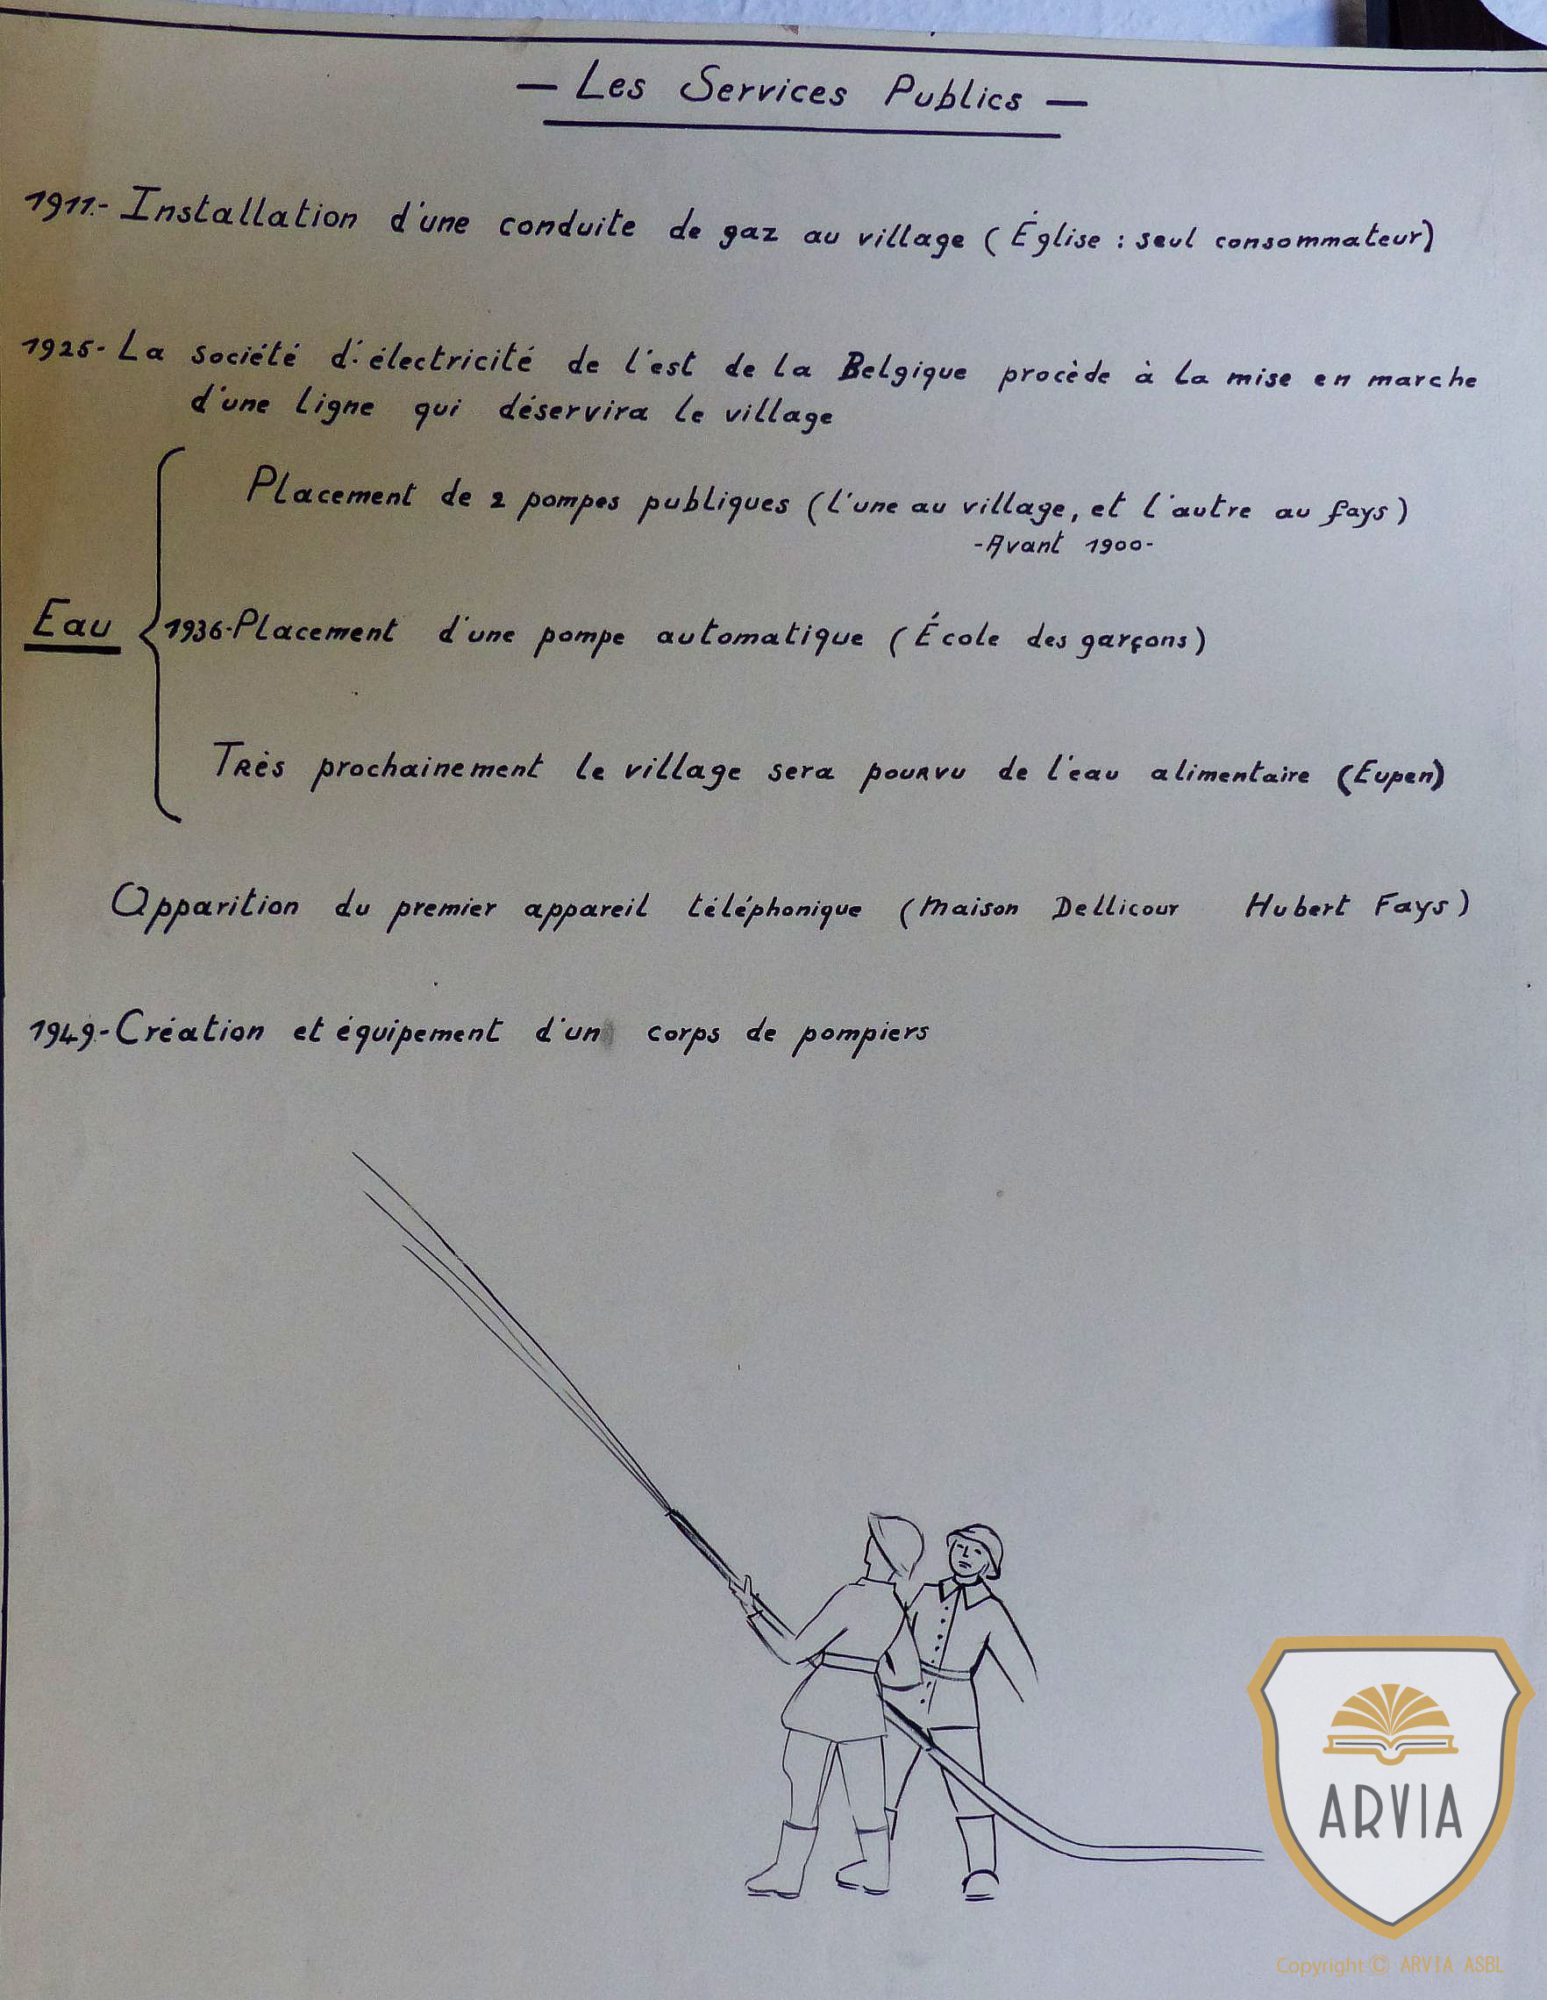 — Les Services Publics —
1911.- Installation d'une conduite de gaz au village ( Église : seul consommateur)
1925- La société d'électricité de l'est de la Belgique procède à la mise en marche
d'une ligne qui déservira le village
Placement de 2 pompes publiques (l'une au village, et l'autre au fays)
-Avant 1900-
Eau
1936-Placement d'une pompe automatique (École des garçons)
Très prochainement le village sera pourvu de l'eau alimentaire (Eupen)
Apparition du premier appareil téléphonique (Maison Dellicour Hubert Fays)
1949-Création et équipement d'un corps de pompiers
ARVIA
Copyright © ARVIA ASBL